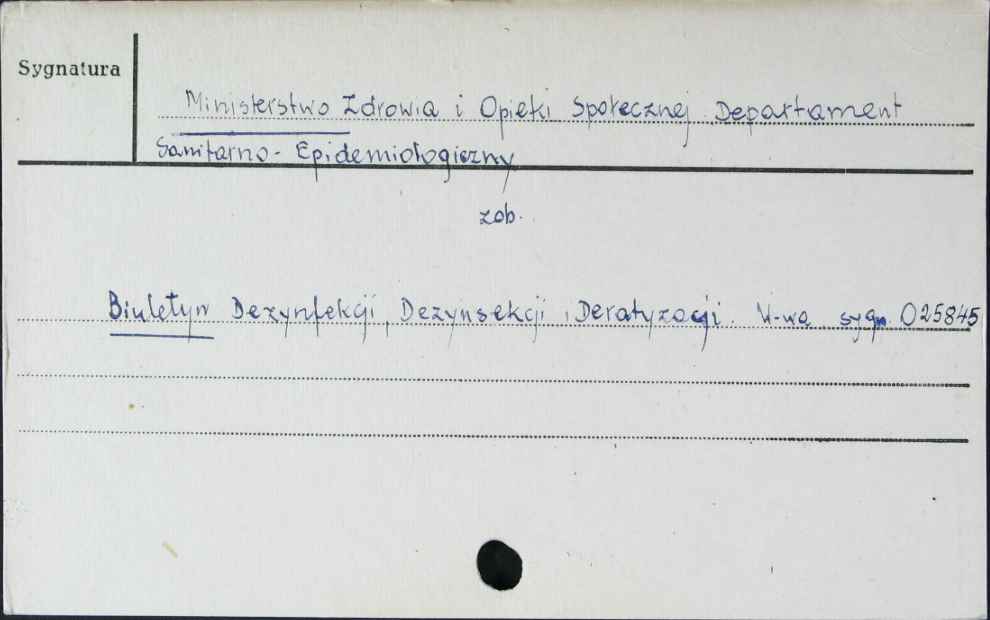 Sygnatura
Ministerstwo Zdrowia i Opieki Społecznej Departament
Sanitarno-Epidemiologiczny
zob.
Biuletyn Dezynfekcji, Dezynsekcji i Deratyzacji. W-wa sygn. 025845